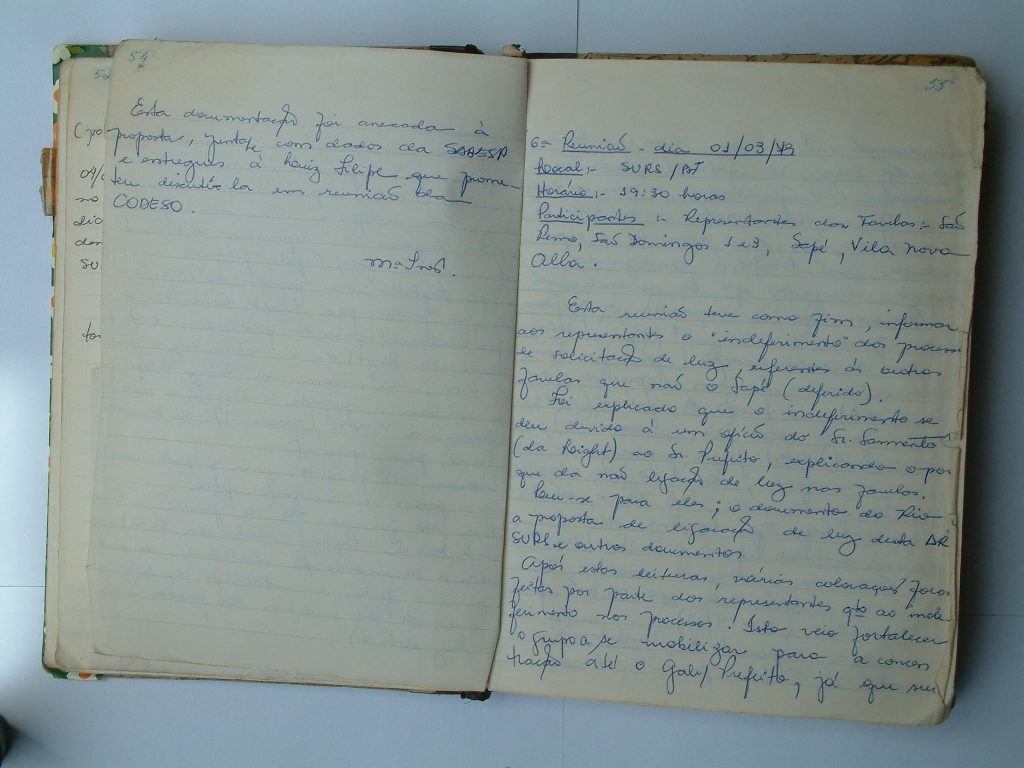 54
Esta documentação foi anexada à
proposta, junta/e com dados da SABESP
e entregues à Luiz Filipe que prome-
teu discutí-la em reunião pla
CODESO.
52
55
6ª Reunião - dia 01/03/79
Local:- SURS/BT
Horário:- 19:30 horas
Participantes:- Representantes das Favelas:- São
Remo, São Domingos 1 e 3, Sapé, Vila Nova
Alba.
Esta reunião teve como fim, informar
aos representantes o "indeferimento" dos process
de solicitação de luz, referentes às outras
favelas que não o Sapé (deferido).
Foi explicado que o indeferimento se
deu devido à um ofício do Sr. Sarmento
(da Laight) ao Sr. Prefeito, explicando o por
que da não ligação de luz nas favelas.
Leu-se para eles; o documento do Rio
a proposta de ligação de luz desta AR
SURS e outros documentos
Após estas leituras, várias colocações foram
feitas por parte dos representantes qto ao inde-
ferimento nos processos. Isto veio fortalecer
o grupo a se mobilizar para a concen
tração até o Gab/Prefeito, já que seu